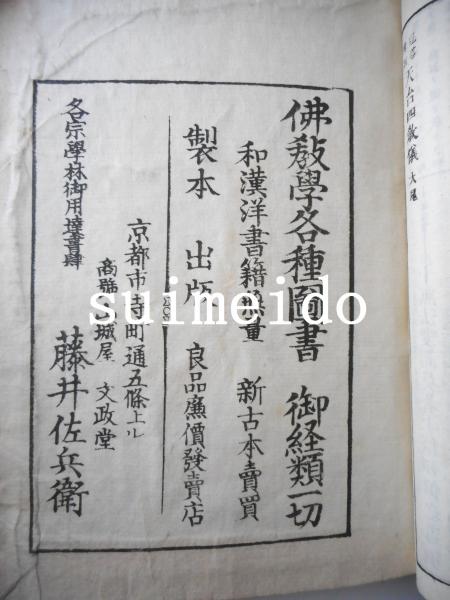 天台四教儀 大尾
佛教學各種圖書 御経類一切
和漢洋書籍 新古本賣買
製本 出版 良品廉價發賣店
京都市寺町通五條上ル
商號 城屋 文政堂
藤井佐兵衛
各宗學林御用達書肆
suimeido